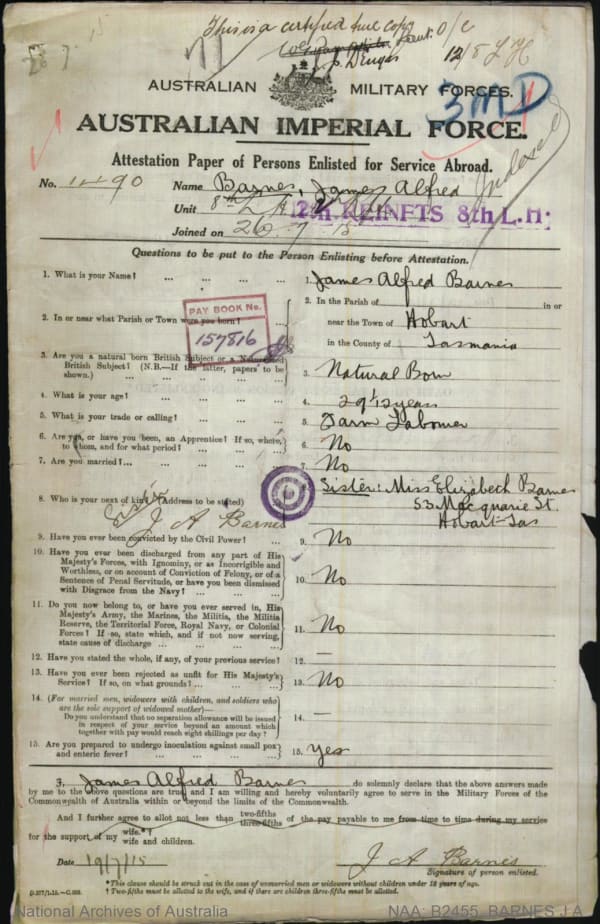 This is a certified true copy
Lieut. O/C
12/8 L H
AUSTRALIAN MILITARY FORCES.
3MD
AUSTRALIAN IMPERIAL FORCE.
Attestation Paper of Persons Enlisted for Service Abroad.
No. 1490 Name Barnes, James Alfred
Unit 8th L H 12th REINFTS 8th L.H:
Joined on 26.7.15
Questions to be put to the Person Enlisting before Attestation.
1. What is your Name? ... ... ... 1. James Alfred Barnes
2. In or near what Parish or Town were you born? ... 2. In the Parish of in or
near the Town of Hobart
in the County of Tasmania
PAY BOOK No.
157816
3. Are you a natural born British Subject or a Naturalized
British Subject? (N.B.—If the latter, papers to be
shown.) ... 3. Natural Born
4. What is your age? ... ... 4. 29 1/12 years
5. What is your trade or calling? ... ... 5. Farm Labourer
6. Are you, or have you been, an Apprentice? If so, where,
to whom, and for what period? ... ... 6. No
7. Are you married? ... ... ... 7. No
8. Who is your next of kin? (Address to be stated) Sister: Miss Elizabeth Barnes
53 Macquarie St.
Hobart-Tas
J A Barnes
9. Have you ever been convicted by the Civil Power? ... 9. No
10. Have you ever been discharged from any part of His
Majesty's Forces, with Ignominy, or as Incorrigible and
Worthless, or on account of Conviction of Felony, or of a
Sentence of Penal Servitude, or have you been dismissed
with Disgrace from the Navy? ... ... 10. No
11. Do you now belong to, or have you ever served in, His
Majesty's Army, the Marines, the Militia, the Militia
Reserve, the Territorial Force, Royal Navy, or Colonial
Forces? If so, state which, and if not now serving,
state cause of discharge ... ... 11. No
12. Have you stated the whole, if any, of your previous service? 12. —
13. Have you ever been rejected as unfit for His Majesty's
Service? If so, on what grounds? ... ... 13. No
14. (For married men, widowers with children, and soldiers who
are the sole support of widowed mother)—
Do you understand that no separation allowance will be issued
in respect of your service beyond an amount which
together with pay would reach eight shillings per day? 14. —
15. Are you prepared to undergo inoculation against small pox
and enteric fever? ... ... 15. Yes
I, James Alfred Barnes do solemnly declare that the above answers made
by me to the above questions are true, and I am willing and hereby voluntarily agree to serve in the Military Forces of the
Commonwealth of Australia within or beyond the limits of the Commonwealth.
And I further agree to allot not less than two-fifths three-fifths of the pay payable to me from time to time during my service
for the support of my wife.*†
wife and children.
Date 19/7/15 J A Barnes
Signature of person enlisted.
*This clause should be struck out in the case of unmarried men or widowers without children under 18 years of age.
† Two-fifths must be allotted to the wife, and if there are children three-fifths must be allotted.
National Archives of Australia NAA: B2455, BARNES J A